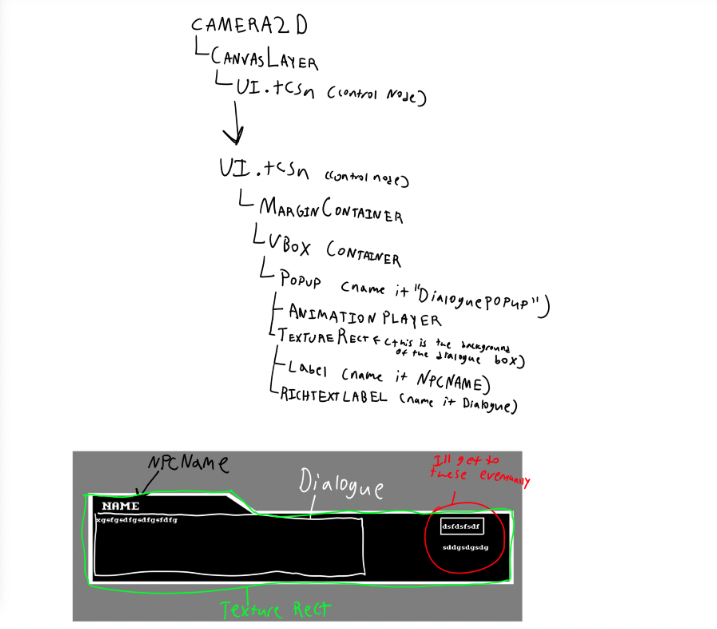 CAMERA2D
CANVASLAYER
UI.tCSn (control Node)
UI.tCSn (control node)
MARGINCONTAINER
VBOX CONTAINER
POPUP (name it "DialoguePOPUP")
ANIMATION PLAYER
TEXTURERECT ← (this is the background
of the dialogue box)
Label (name it NPCNAME)
RICHTEXTLABEL (name it Dialogue)
NPCName
I'll get to
these eventually
Dialogue
NAME
xgsfgsdfgsdfgsfdfg
dsfdsfsdf
sddgsdgsdg
Texture Rect